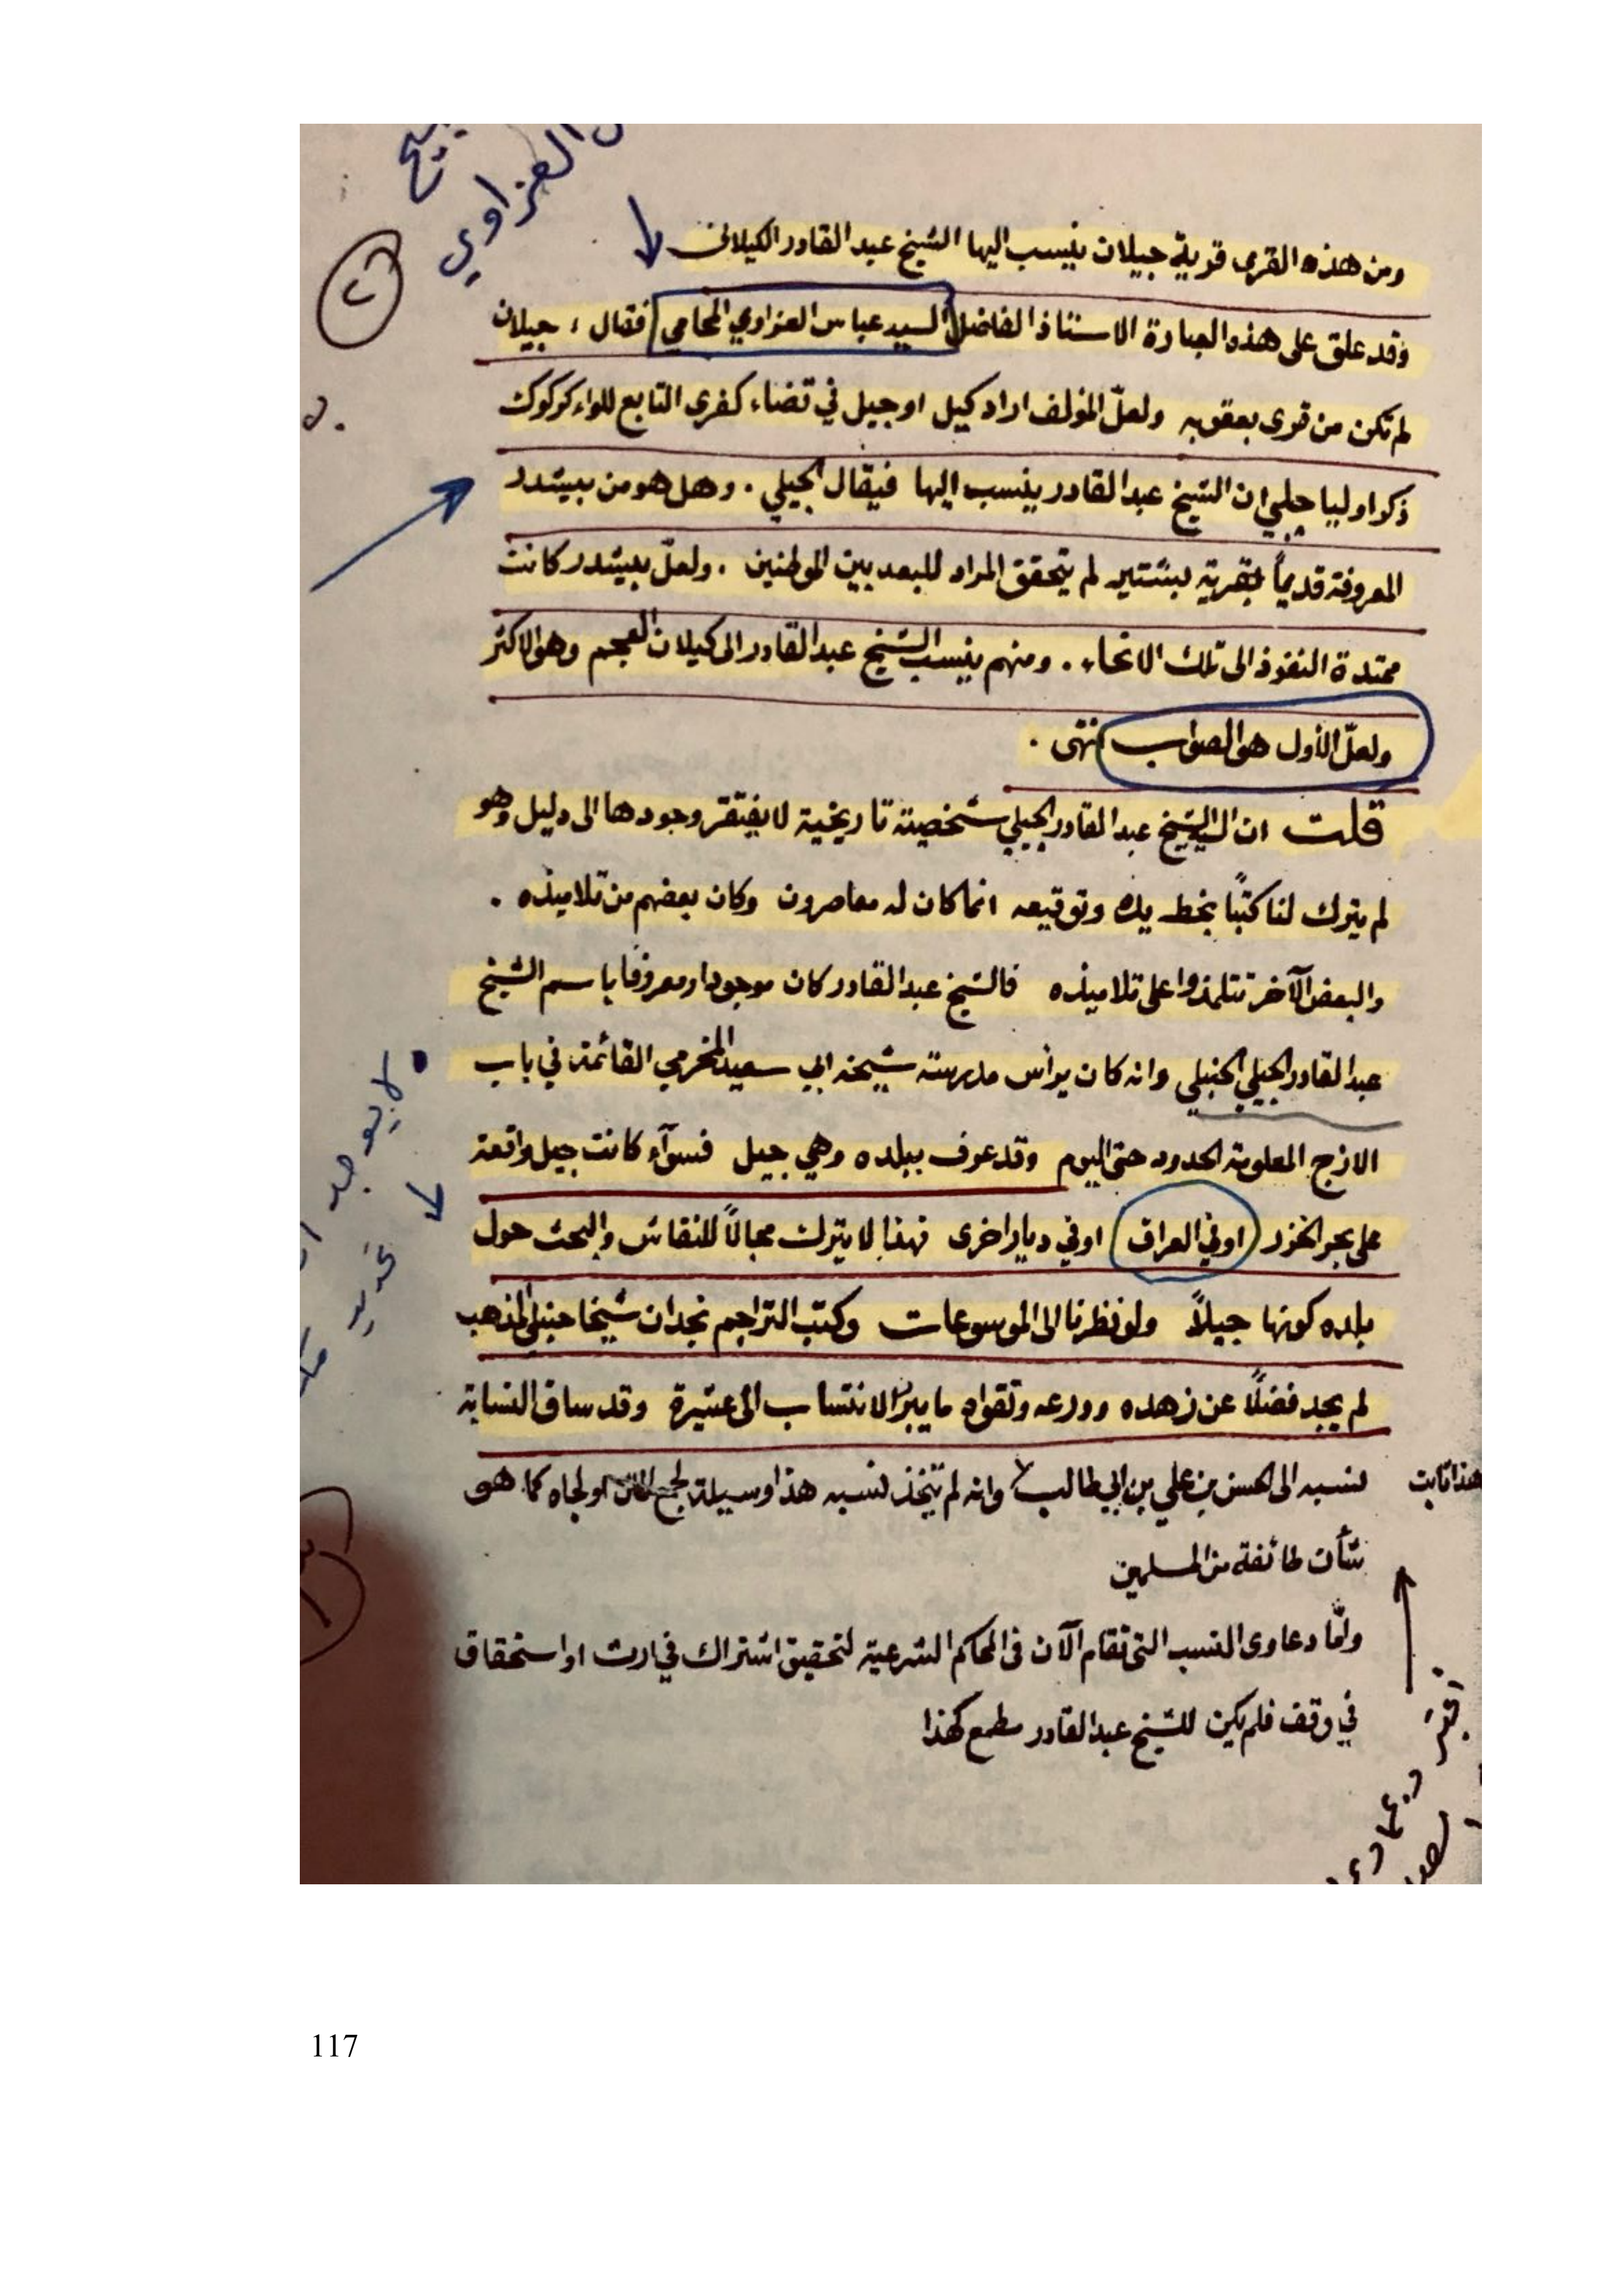 العزاوي
٢
ومن هذه القرى قرية جيلان ينسب اليها الشيخ عبد القادر الكيلاني
وقد علق على هذه العبارة الاستاذ الفاضل السيد عباس العزاوي المحامي فقال : جيلان
لم تكن من قرى بعقوبه ولعلّ المؤلف اراد كيل او جيل في قضاء كفرى التابع للواء كركوك
ذكر اوليا جلبي ان الشيخ عبد القادر ينسب اليها فيقال الجيلي . وهل هو من بيشدر
المعروفة قديماً بقرية بشتير لم يتحقق المراد للبعد بين الموطنين . ولعلّ بيشدر كانت
ممتدة النفوذ الى تلك الانحاء . ومنهم ينسب الشيخ عبد القادر الى كيلان العجم وهو الاكثر
ولعلّ الأول هو الصواب انتهى .
قلت ان الشيخ عبد القادر الجيلي شخصية تاريخية لا يفتقر وجودها الى دليل وهو
لم يترك لنا كتبًا بخط يده وتوقيعه انما كان له معاصرون وكان بعضهم من تلاميذه .
والبعض الآخر تتلمذوا على تلاميذه فالشيخ عبد القادر كان موجودا ومعروفا باسم الشيخ
عبد القادر الجيلي الحنبلي وانه كان يرأس مدرسة شيخه ابي سعيد المخرمي القائمة في باب
الازج المعلومة الحدود حتى اليوم وقد عرف ببلده وهي جيل فسوآء كانت جيل واقعة
على بحر الخزر او في العراق او في ديار اخرى فهذا لا يترك مجالاً للنقاش والبحث حول
بلده كونها جيلاً ولو نظرنا الى الموسوعات وكتب التراجم نجد ان شيخا حنبلي المذهب
لم يجد فضلًا عن زهده وورعه وتقواه ما يبرر الانتساب الى عشيرة وقد ساق النسابة
هذا ثابت
نسبه الى الحسن بن علي بن ابي طالب وانه لم يتخذ نسبه هذا وسيلة لجمع المال او لجاه كما هو
شأن طائفة من المسلمين
وامّا دعاوى النسب التي تقام الآن في المحاكم الشرعية لتحقيق اشتراك في ارث او استحقاق
في وقف فلم يكن للشيخ عبد القادر مطمع كهذا
لا يوجد
117